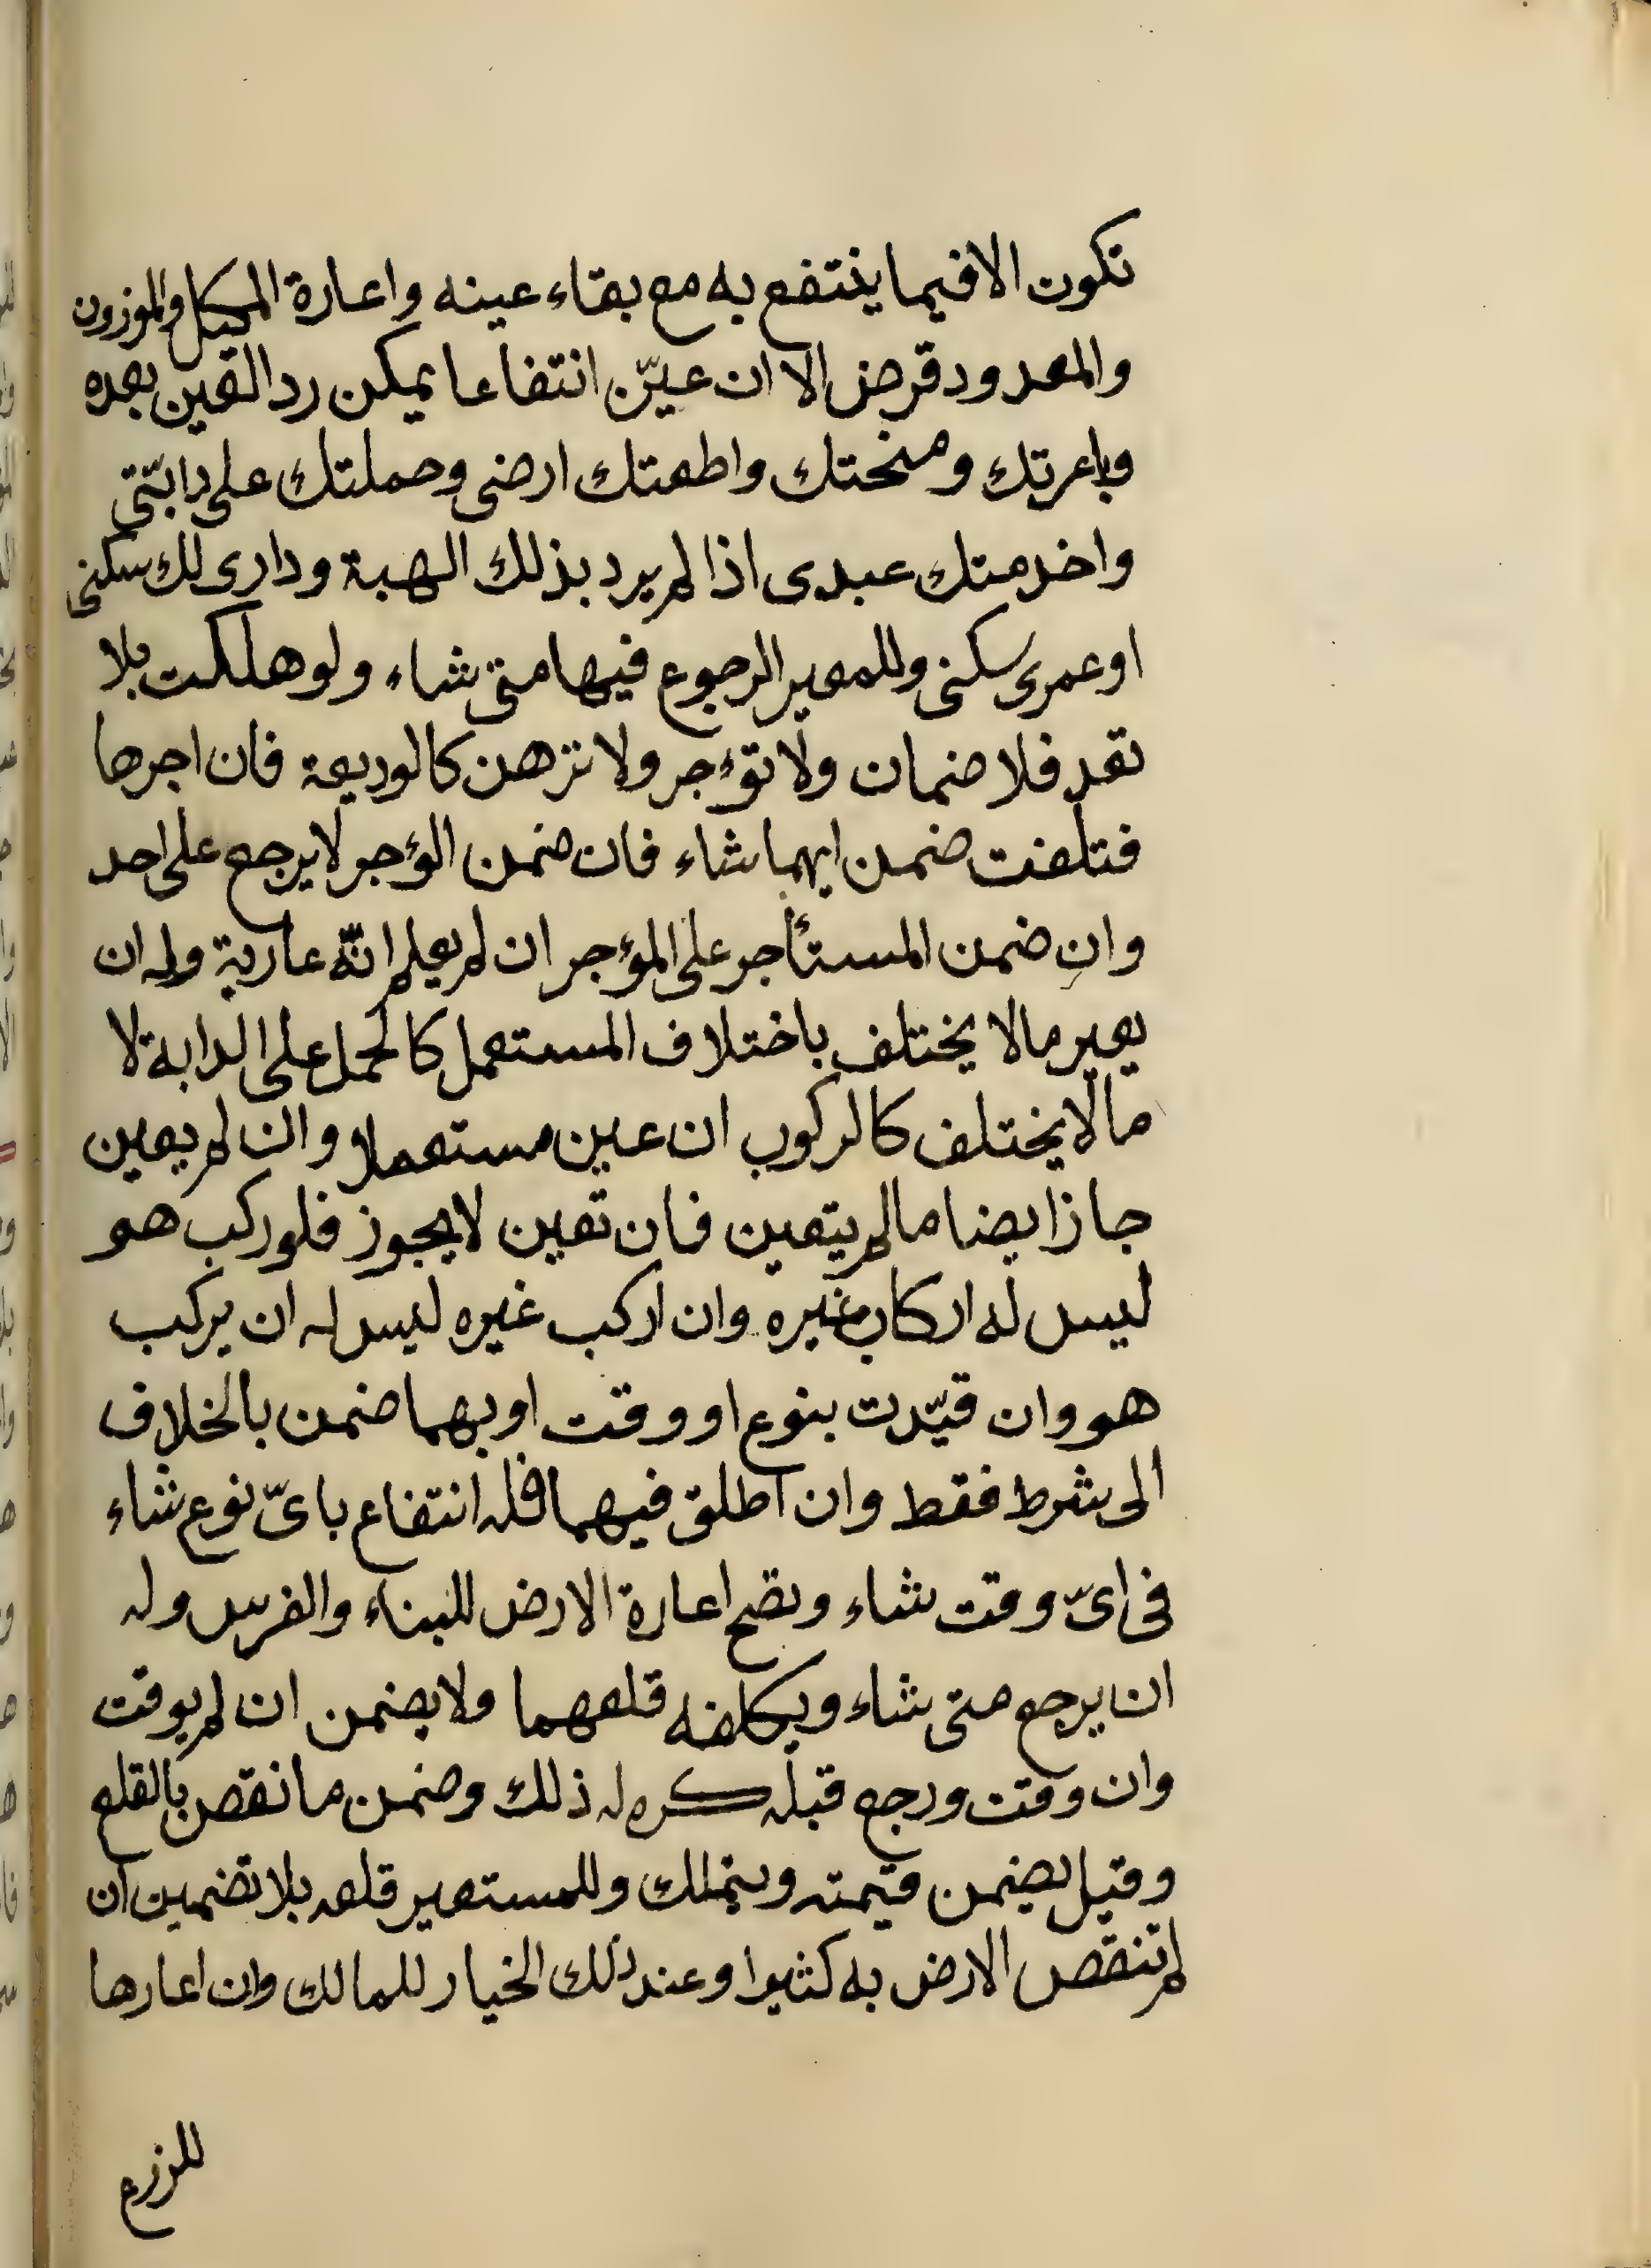 تكون الا فيما ينتفع به مع بقاء عينه واعارة المكيل والموزون
والمعدود قرض الا ان عيّن انتفاعا يمكن رد العين بعده
وباعرتك ومنحتك واطعمتك ارضى وحملتك على دابّتى
واخدمتك عبدى اذا لم يرد بذلك الهبة ودارى لك سكنى
او عمرى سكنى وللمعير الرجوع فيها متى شاء ولو هلكت بلا
تعد فلا ضمان ولا تؤجر ولا ترهن كالوديعة فان اجرها
فتلفت ضمن ايهما شاء فان ضمن المؤجر لا يرجع على احد
وان ضمن المستأجر على المؤجر ان لم يعلم انّه عارية وله ان
يعير مالا يختلف باختلاف المستعمل كالحمل على الدابة لا
مالا يختلف كالركوب ان عين مستعملا وان لم يعين
جاز ايضا مالم يتعين فان تعين لا يجوز فلو ركب هو
ليس له اركاب غيره وان اركب غيره ليس له ان يركب
هو وان قيّدت بنوع او وقت او بهما ضمن بالخلاف
الى شرط فقط وان اطلق فيهما فله انتفاع باىّ نوع شاء
فى اىّ وقت شاء وتصح اعارة الارض للبناء والغرس وله
ان يرجع متى شاء ويكلفه قلعهما ولا يضمن ان لم يوقت
وان وقت ورجع قبله كره له ذلك وضمن ما نقص بالقلع
وقيل يضمن قيمته ويتملك وللمستعير قلعه بلا تضمين ان
لم تنقص الارض به كثيرا وعند ذلك الخيار للمالك وان اعارها
للزرع